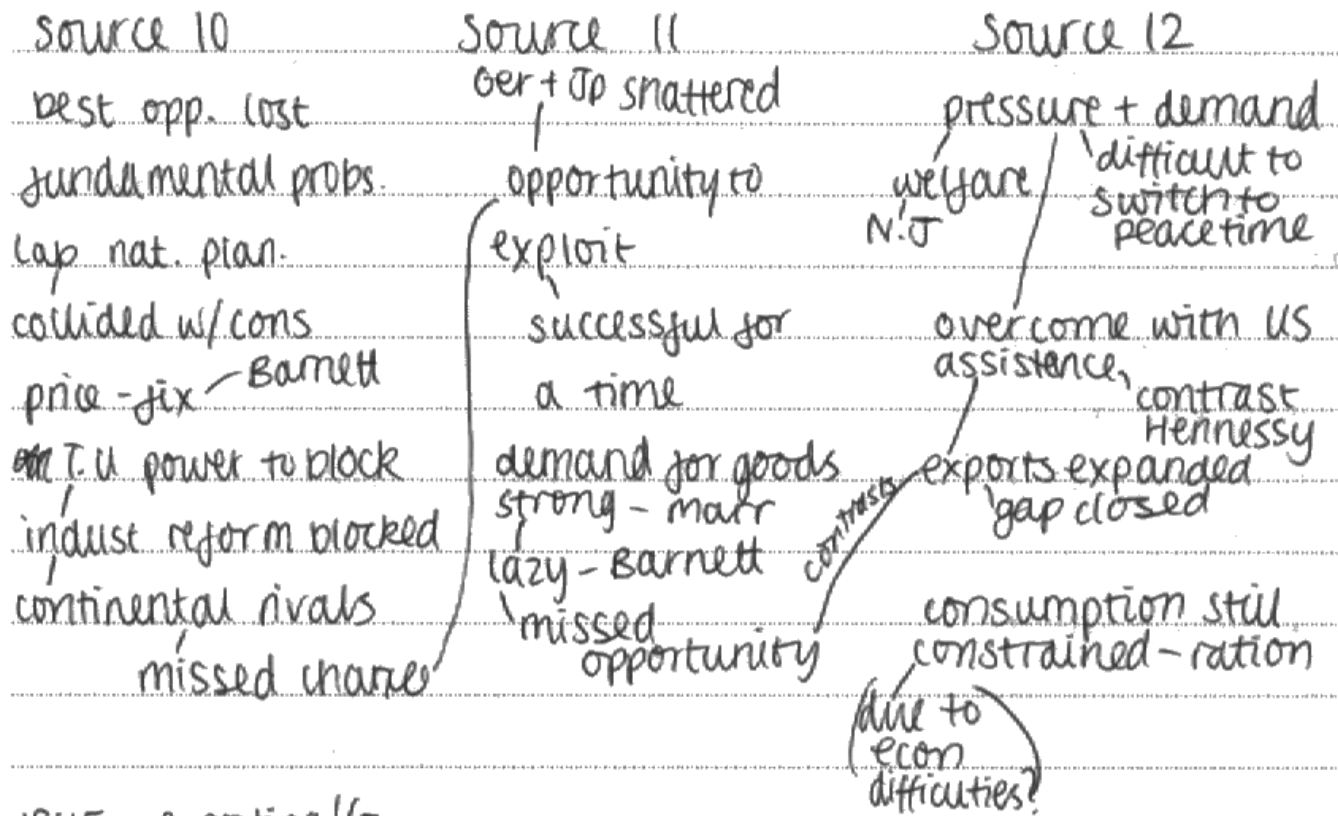 Source 10
best opp. lost
fundamental probs.
Lap nat. plan.
collided w/cons
price-fix - Barnett
T.U power to block
indust reform blocked
continental rivals
missed chance
Source 11
Ger + Jp shattered
opportunity to
exploit
successful for
a time
demand for goods
strong - marr
lazy - Barnett
missed
opportunity
contrasts
Source 12
pressure + demand
difficult to
switch to
peacetime
welfare
N.J
overcome with US
assistence
contrast
Hennessy
exports expanded
gap closed
consumption still
constrained - ration
(due to
econ
difficuties?)